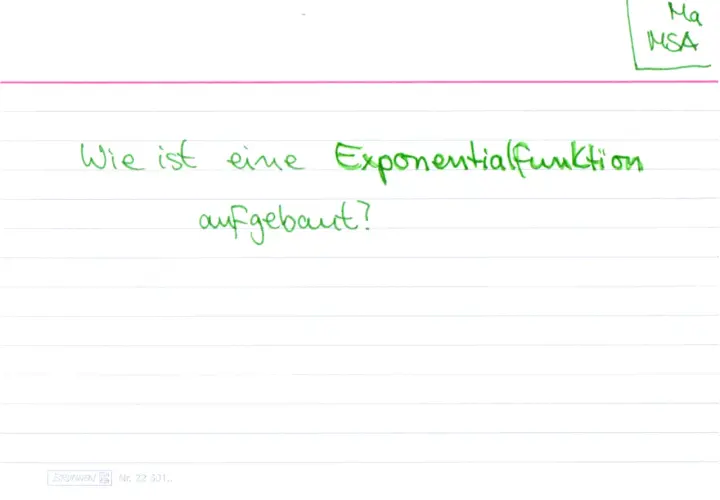 Ma
MSA
Wie ist eine Exponentialfunktion
aufgebaut?
Nr. 22 501..